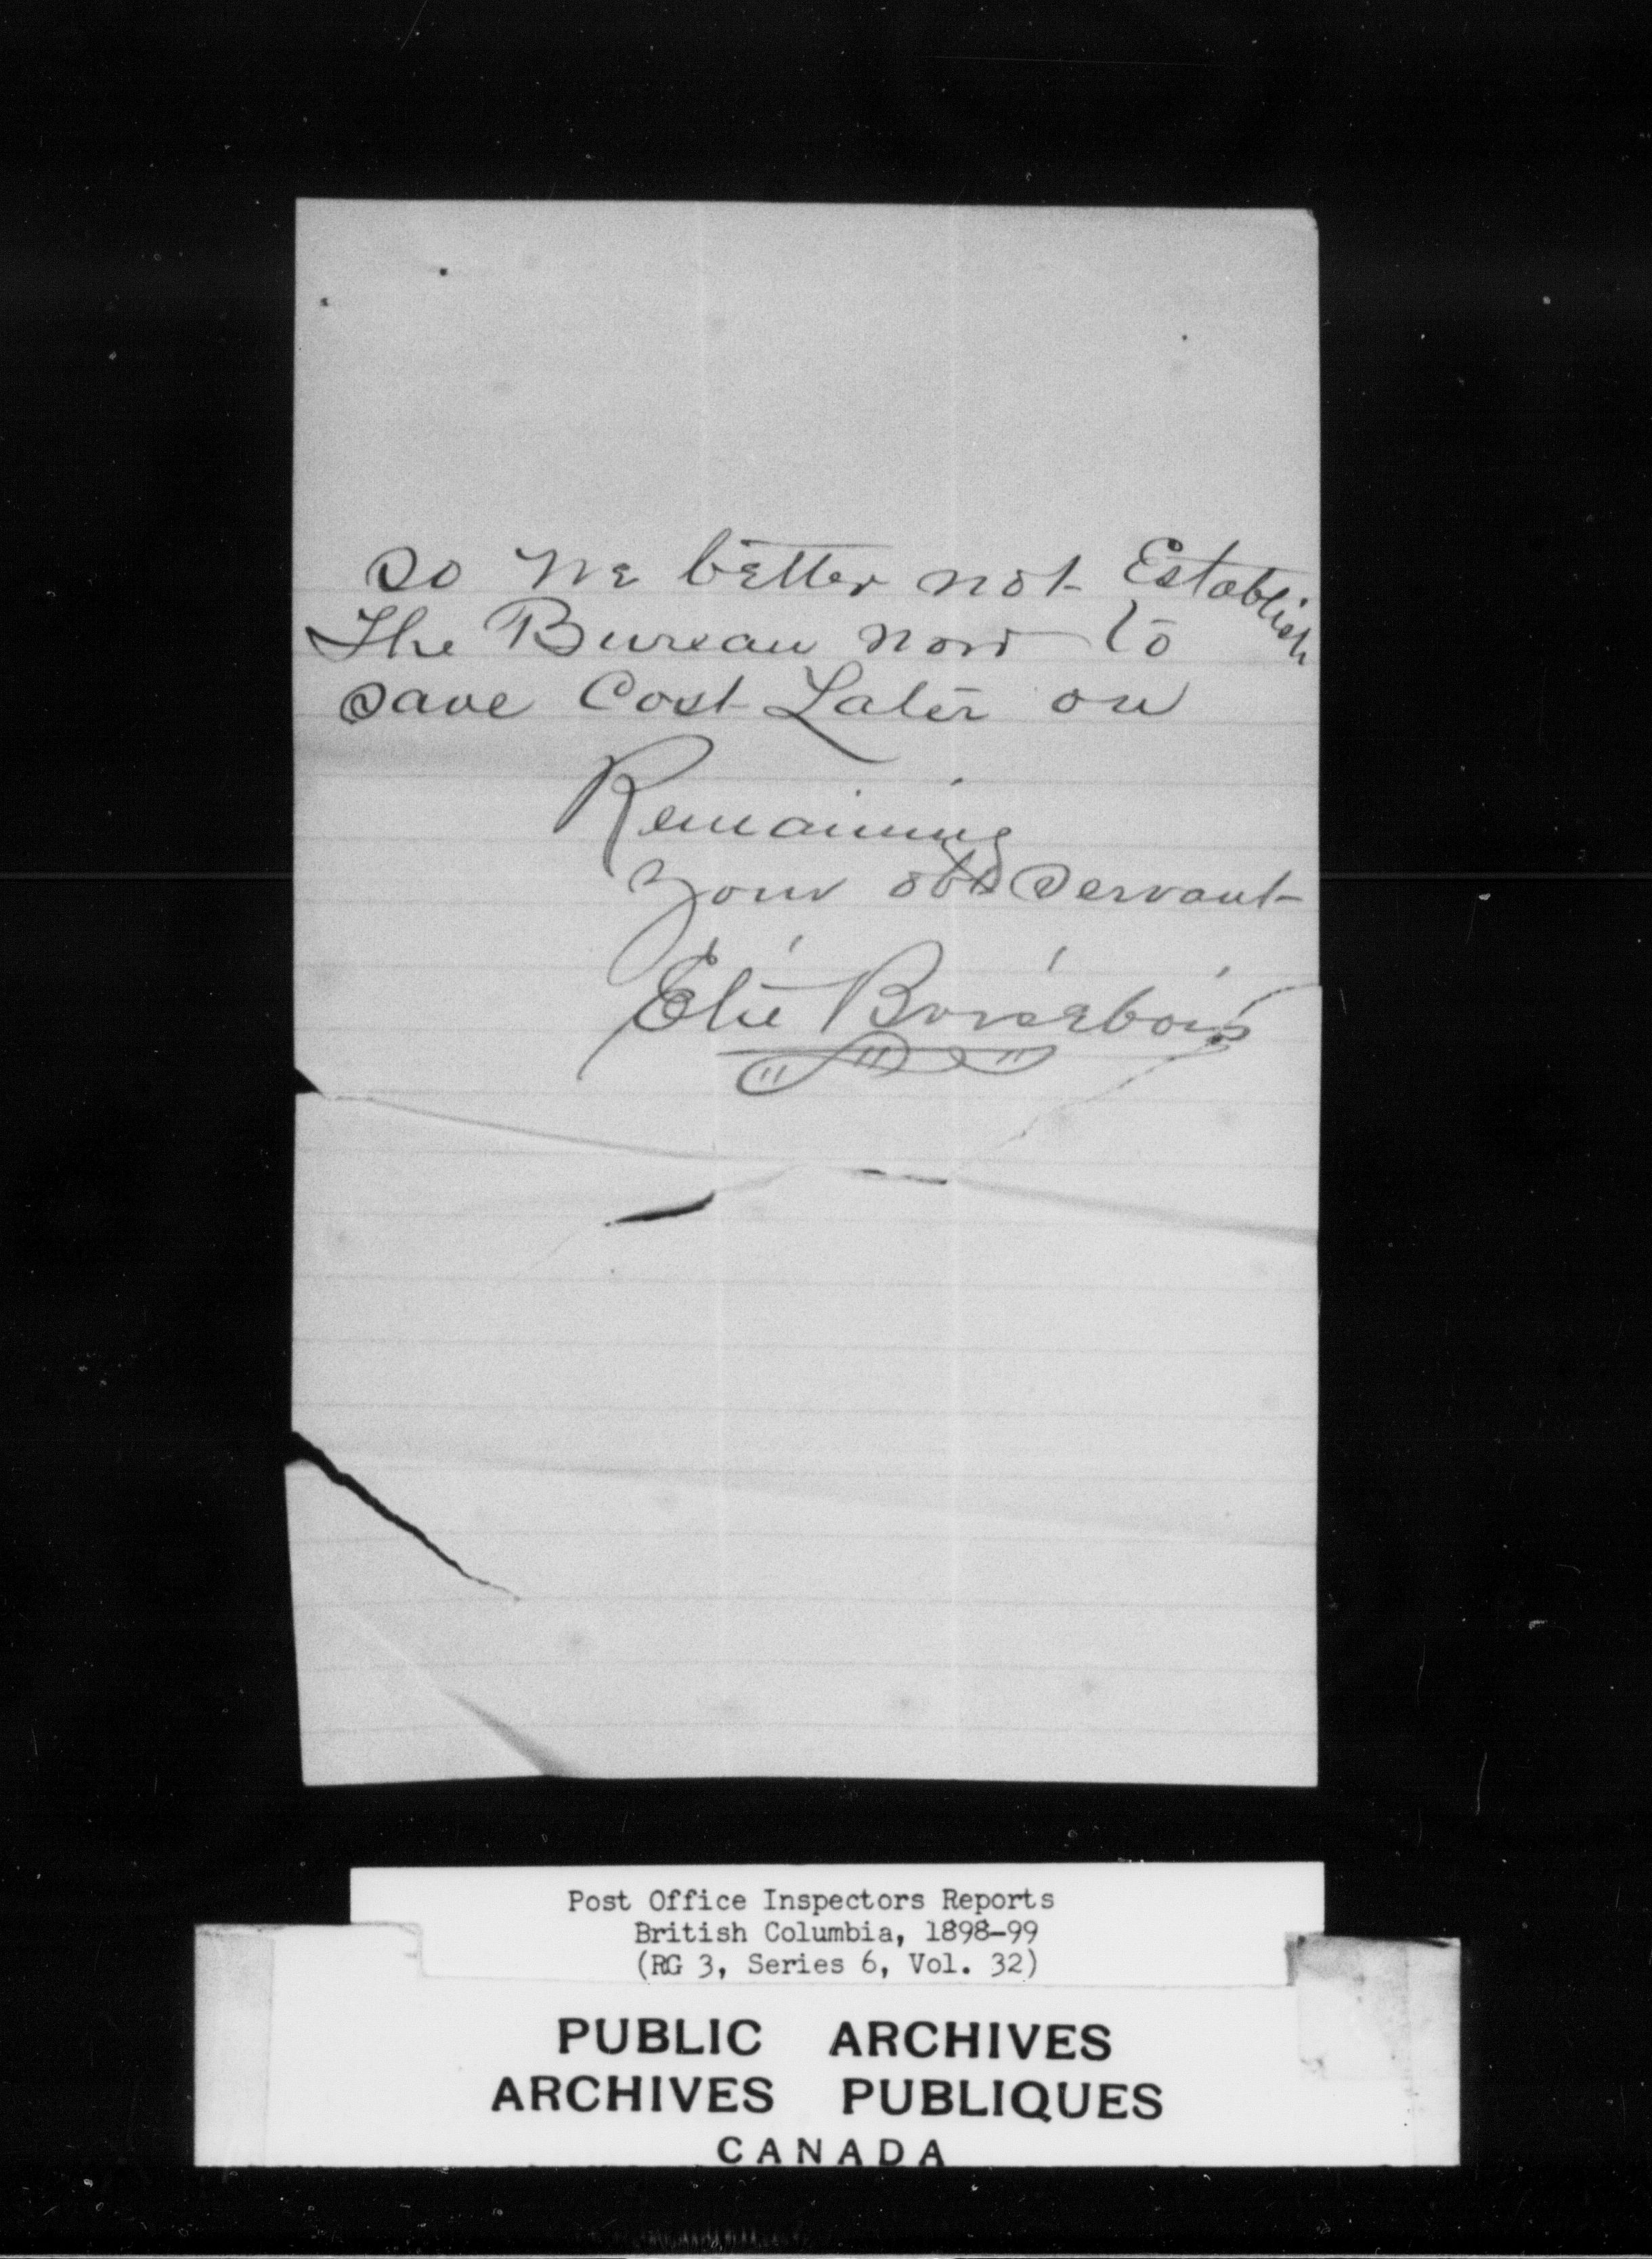 so we better not Establish
The Bureau now to
save Cost Later on
Remaining
Your obt Servant
Elié Boisebois
Post Office Inspectors Reports
British Columbia, 1898-99
(RG 3, Series 6, Vol. 32)
PUBLIC ARCHIVES
ARCHIVES PUBLIQUES
CANADA